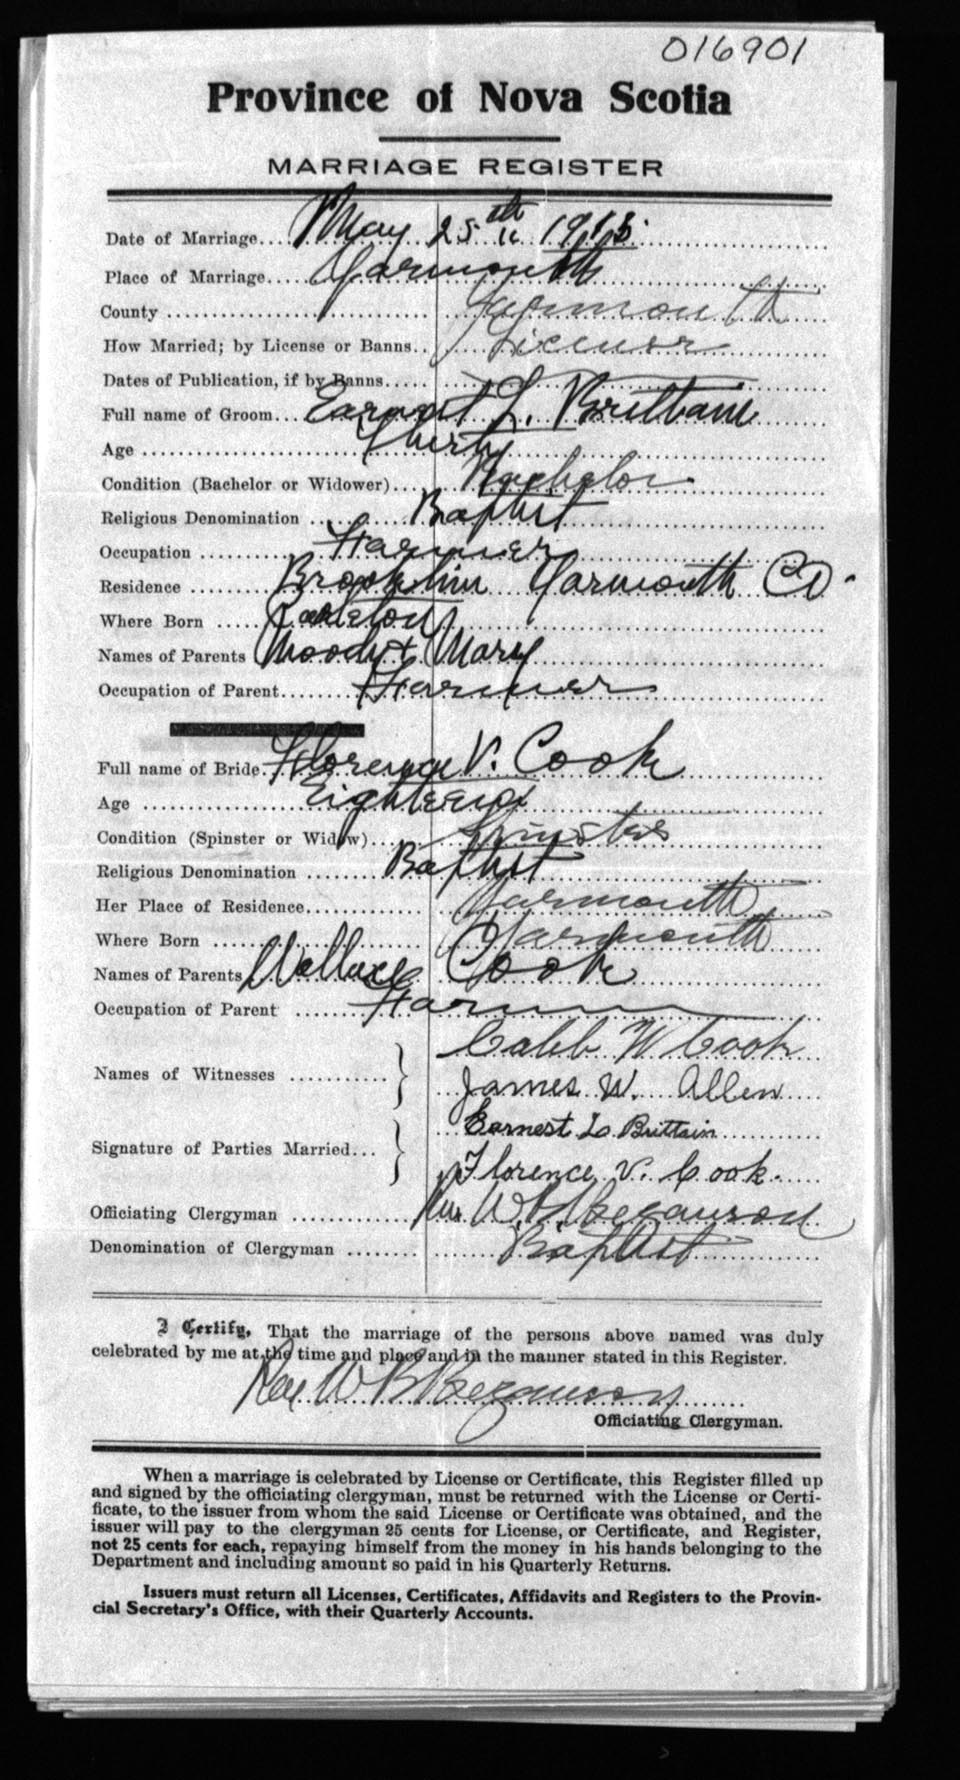 016901
Province of Nova Scotia
MARRIAGE REGISTER
Date of Marriage.... May 25th
Place of Marriage.... Yarmouth
County .... Yarmouth
How Married; by License or Banns.. License
Dates of Publication, if by Banns.....
Full name of Groom... Earnest L. Brittain
Age .... Thirty
Condition (Bachelor or Widower).... Bachelor
Religious Denomination .... Baptist
Occupation .... Farmer
Residence .... Yarmouth Co.
Where Born .... Carleton
Names of Parents Moody + Mary
Occupation of Parent.... Farmer
Full name of Bride. Florence V. Cook
Age .... Eighteen
Condition (Spinster or Widow).... Spinster
Religious Denomination .... Baptist
Her Place of Residence.... Yarmouth
Where Born .... Yarmouth
Names of Parents Wallace Cook
Occupation of Parent ....
Names of Witnesses .... Caleb W Cook
James W. Allen
Signature of Parties Married... Earnest L. Brittain
Florence V. Cook.
Officiating Clergyman .... Rev W. B. Bezanson
Denomination of Clergyman .... Baptist
I Certify, That the marriage of the persons above named was duly
celebrated by me at the time and place and in the manner stated in this Register.
Rev W B Bezanson
Officiating Clergyman.
When a marriage is celebrated by License or Certificate, this Register filled up
and signed by the officiating clergyman, must be returned with the License or Certi-
ficate, to the issuer from whom the said License or Certificate was obtained, and the
issuer will pay to the clergyman 25 cents for License, or Certificate, and Register,
not 25 cents for each, repaying himself from the money in his hands belonging to the
Department and including amount so paid in his Quarterly Returns.
Issuers must return all Licenses, Certificates, Affidavits and Registers to the Provin-
cial Secretary's Office, with their Quarterly Accounts.